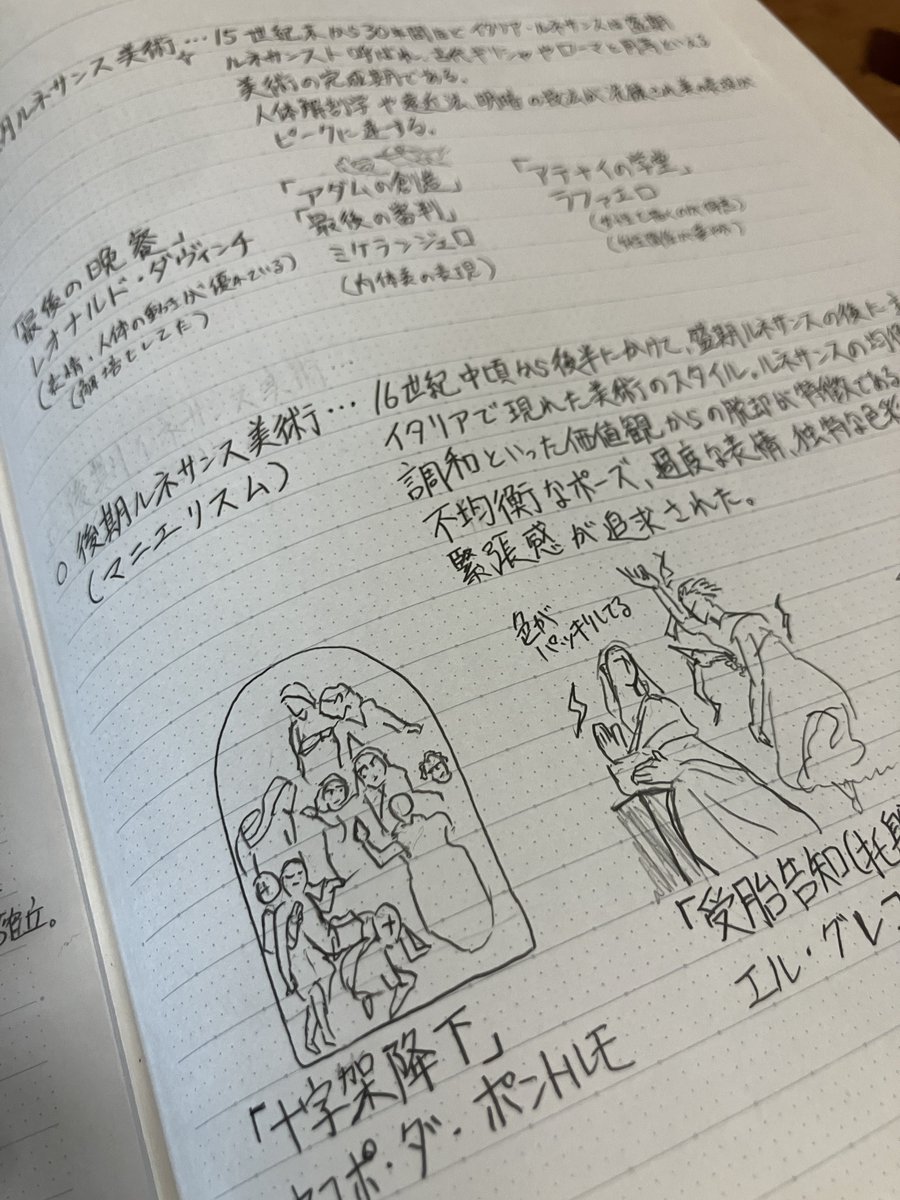 期ルネサンス美術…15世紀末から30年間ほど イタリア・ルネサンスは盛期
ルネサンスト呼ばれ、古代ギリシャやローマと同等といえる
美術の完成期である。
人体解剖学や遠近法、明暗の技法が洗練され美の表現が
ピークに達する。
「最後の晩餐」
レオナルド・ダヴィンチ
(表情・人体の動きが優れている)
(解剖としてた)
「アダムの創造」
「最後の審判」
ミケランジェロ
(肉体美の表現)
「アテナイの学堂」
ラファエロ
後期ルネサンス美術…
○後期ルネサンス美術…16世紀中頃から後半にかけて、盛期ルネサンスの後に
(マニエリスム)
イタリアで現れた美術のスタイル。ルネサンスの均
調和といった価値観からの脱却が特徴である
不均衡なポーズ、過度な表情、独特な色
緊張感が追求された。
色が
パッキリしてる
「十字架降下」
コポ・ダ・ポントルモ
「受胎告知(
エル・グレコ
立。